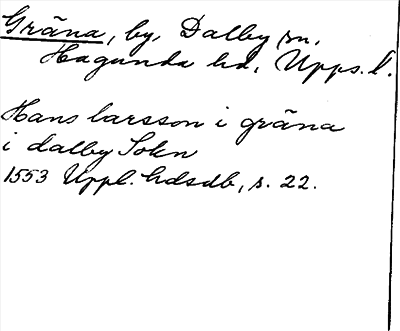 Gräna, by, Dalby sn,
Hagunda hd, Upps. l.
Hans larsson i gräna
i dalby Sokn
1553 Uppl. hdsdb, s. 22.